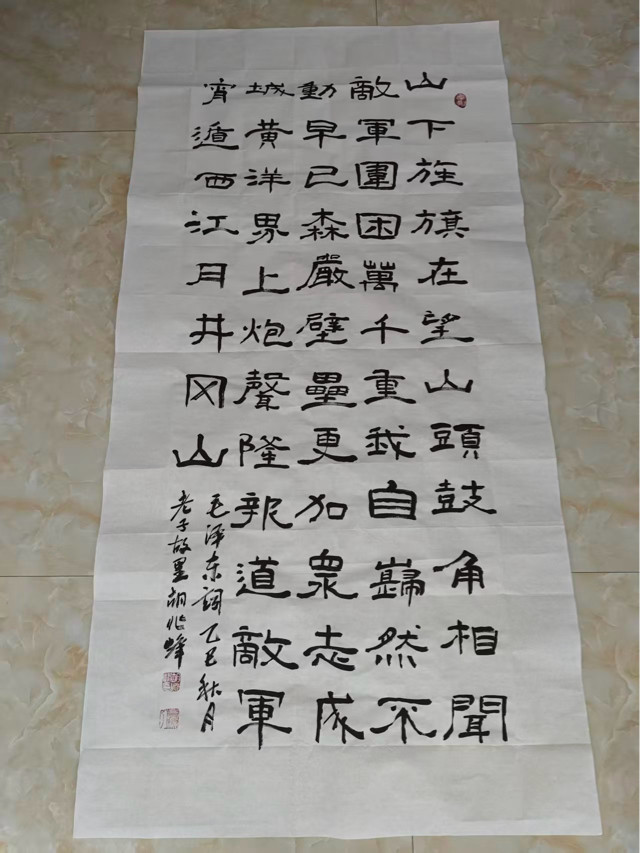 山下旌旗在望山頭鼓角相聞
敵軍圍困萬千重我自巋然不
動早已森嚴壁壘更加眾志成
城黃洋界上炮聲隆報道敵軍
宵遁西江月井冈山
毛泽东词乙巳秋月
老子故里胡兆峰